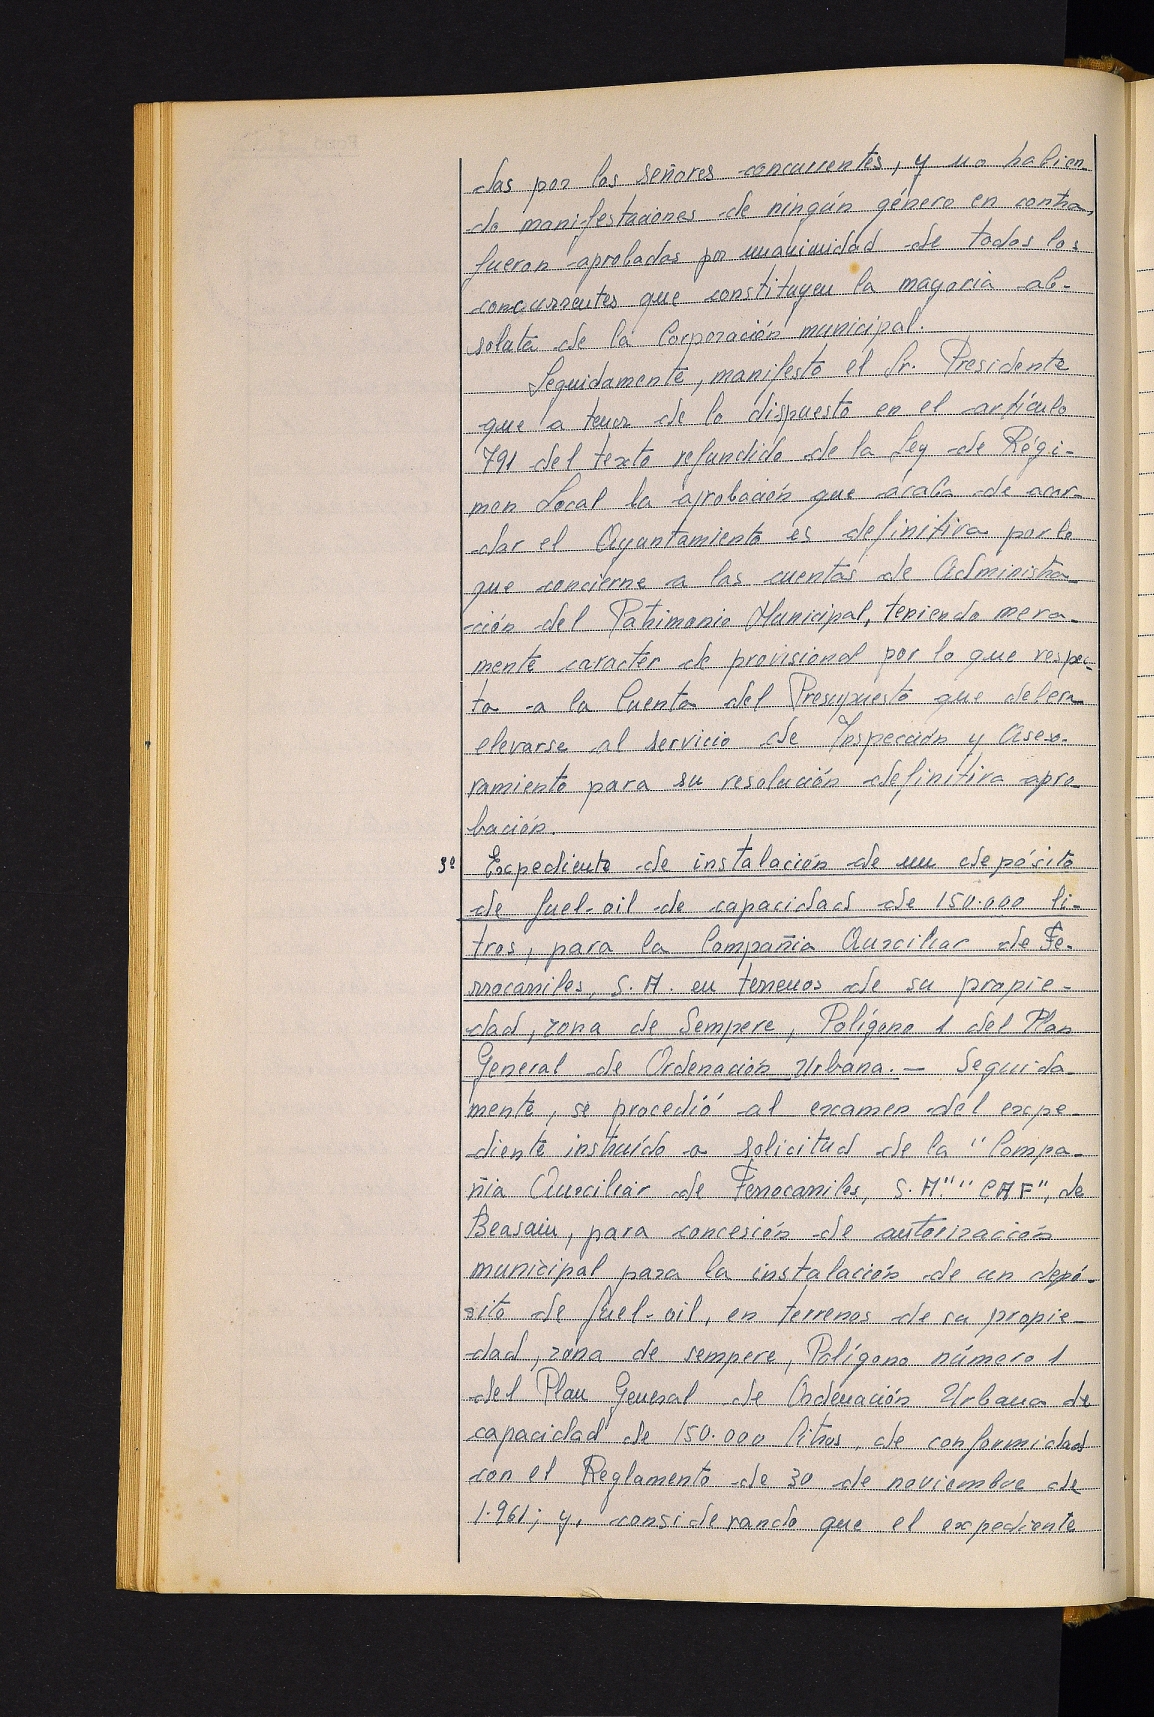 das por los señores concurrentes, y no habien-
do manifestaciones de ningún género en contra,
fueron aprobadas por unanimidad de todos los
concurrentes que constituyen la mayoria ab-
soluta de la Corporación municipal.
Seguidamente, manifestó el Sr. Presidente
que a tenor de lo dispuesto en el artículo
791 del texto refundido de la Ley de Régi-
men Local la aprobación que acaba de acor-
dar el Ayuntamiento es definitiva por lo
que concierne a las cuentas de Administra-
ción del Patrimonio Municipal, teniendo mera-
mente caracter de provisional por lo que respec-
ta a la Cuenta del Presupuesto que debera
elevarse al servicio de Inspección y Aseso-
ramiento para su resolución definitiva apro-
bación.
3º Expediente de instalación de un depósito
de fuel-oil de capacidad de 150.000 li-
tros, para la Compañia Auxiliar de Fe-
rrocarriles, S.A. en terrenos de su propie-
dad, zona de Sempere, Polígono 1 del Plan
General de Ordenación Urbana.— Seguida-
mente, se procedió al examen del expe-
diente instruído a solicitud de la "Compa-
ñia Auxiliar de Ferrocarriles, S.A." "CAF", de
Beasain, para concesión de autorización
municipal para la instalación de un depó-
sito de fuel-oil, en terrenos de su propie-
dad, zona de sempere, Polígono número 1
del Plan General de Ordenación Urbana de
capacidad de 150.000 litros, de conformidad
con el Reglamento de 30 de noviembre de
1.961; y, considerando que el expediente